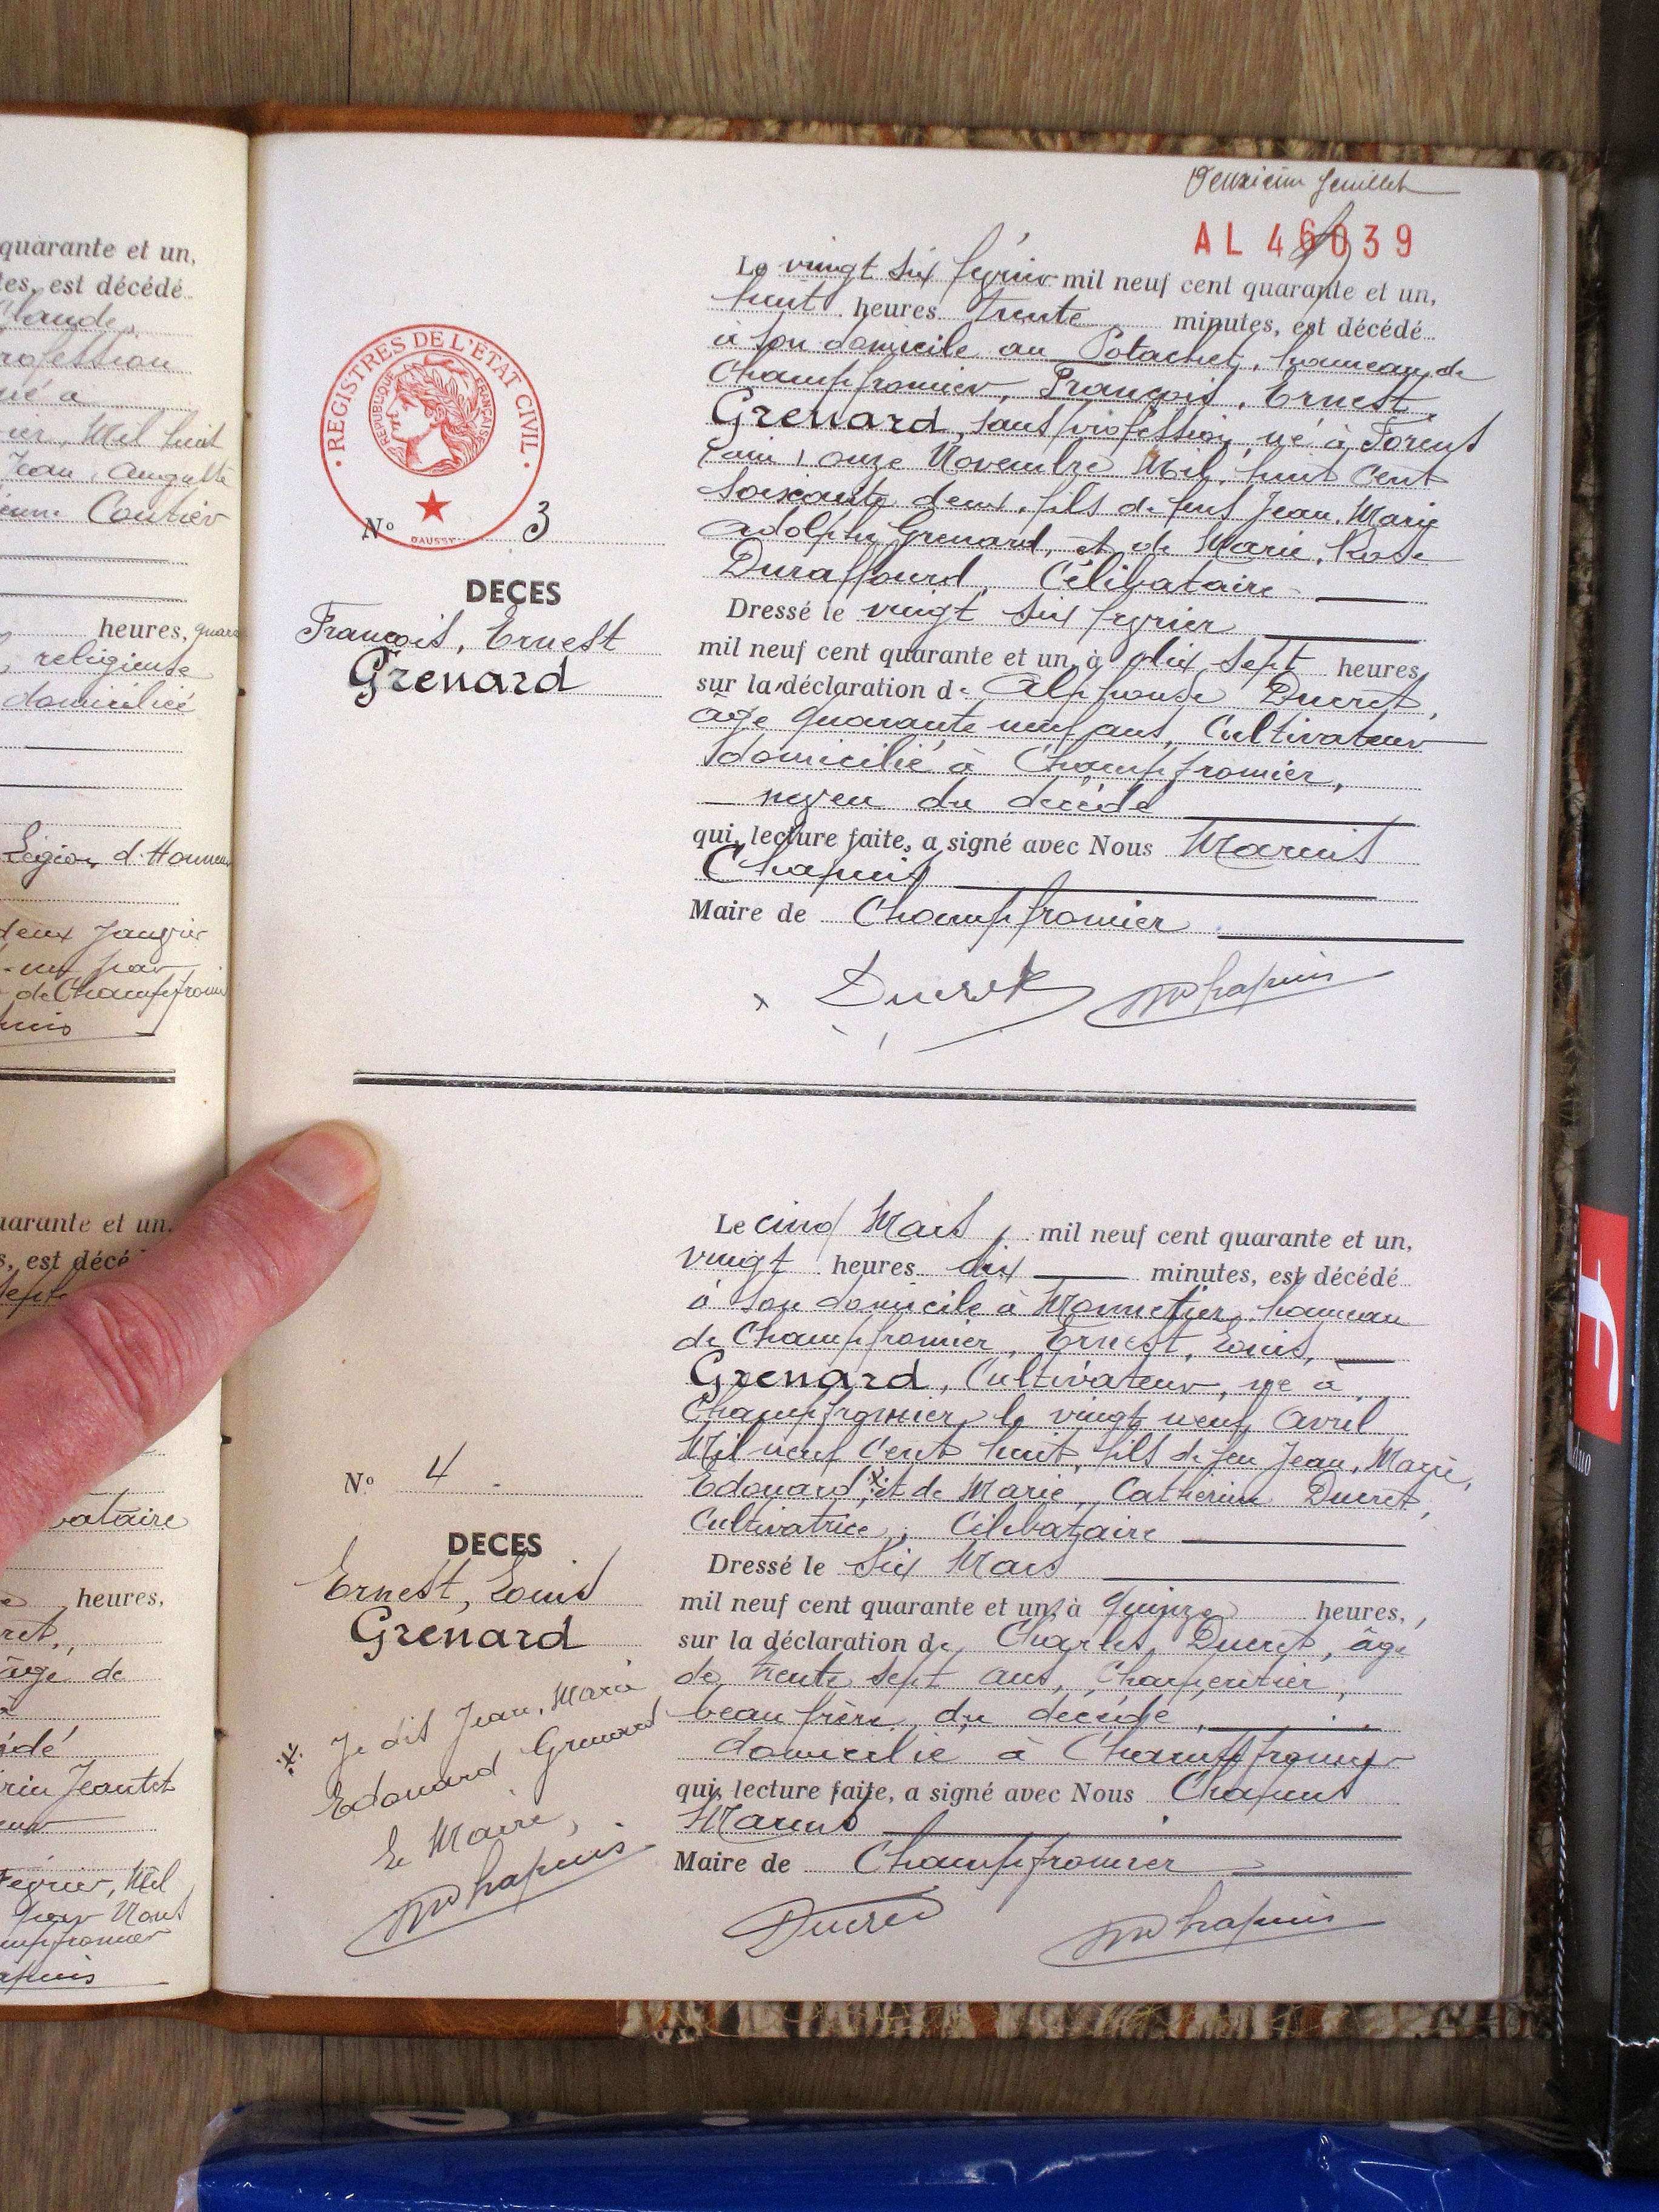 quarante et un,
tes, est décédé
Claude,
rofession
né à
ier, Mil huit
Jean, Auguste
Coutier
heures, quara
religieuse
domicilié
Légion d'Honneu
deux Janvier
un par
de Champfromi
puis
uarante et un,
s, est décé
Sept
bataire
heures,
ret,
âgé de
édé
rin Jeantet
Février, Mil
par Nous
mpfromier
apuis
Deuxième feuillet
AL 46039
REGISTRES DE L'ÉTAT CIVIL
RÉPUBLIQUE FRANÇAISE
DAUSSY
N° 3
DECES
François, Ernest
Grenard
Le vingt six février mil neuf cent quarante et un,
huit heures trente minutes, est décédé
à son domicile au Potachet, hameau de
Champfromier, François, Ernest,
Grenard, sans profession, né à Forens
(Ain), onze Novembre Mil huit cent
soixante deux, fils de feus Jean, Marie
Adolphe Grenard, et de Marie, Rose
Duraffourd, Célibataire
Dressé le vingt six février
mil neuf cent quarante et un, à dix sept heures,
sur la déclaration de Alphonse Ducret,
âge quarante neuf ans, Cultivateur
domicilié à Champfromier,
neveu du décédé
qui, lecture faite, a signé avec Nous Marius
Chapuis
Maire de Champfromier
Ducret MChapuis
N° 4
DECES
Ernest, Louis
Grenard
Je dit Jean, Marie
Edouard Grenard
Le Maire,
MChapuis
Le cinq Mars, mil neuf cent quarante et un,
vingt heures dix minutes, est décédé
à son domicile à Monnetier, hameau
de Champfromier, Ernest, Louis,
Grenard, Cultivateur, né à
Champfromier, le vingt neuf Avril
Mil neuf Cent huit, fils de feu Jean, Marie,
Edouard et de Marie, Catherine Ducret,
Cultivatrice, Célibataire
Dressé le Six Mars
mil neuf cent quarante et un, à quinze heures,
sur la déclaration de Charles, Ducret, âgé
de trente sept ans, Charpentier,
beau frère du décédé,
domicilié à Champfromier
qui, lecture faite, a signé avec Nous Chapuis
Marius
Maire de Champfromier
Ducret MChapuis
duo